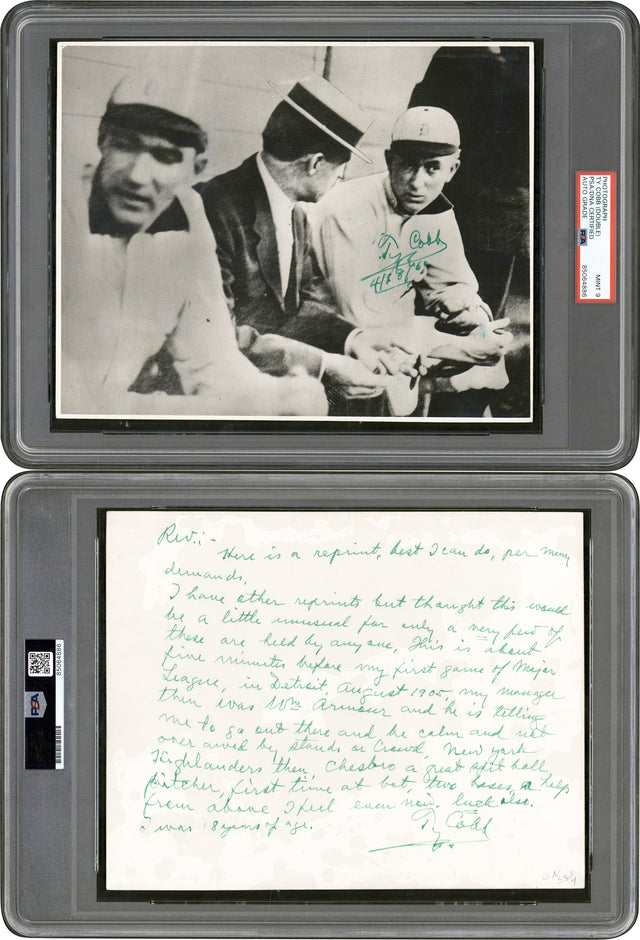 PHOTOGRAPH
TY COBB (DOUBLE)
PSA/DNA CERTIFIED
AUTO GRADE PSA
MINT 9
85064886
D
Ty Cobb
4/28/60
85064886
PSA
Rev:-
Here is a reprint, best I can do, per many
demands,
I have other reprints but thought this would
be a little unusual for only a very few of
these are held by anyone, This is about
five minutes before my first game of Major
League, in Detroit August 1905, my manager
then was Wm Armour and he is telling
me to go out there and be calm and not
over awed by stands or crowd, New York
Highlanders then, Chesbro a great spit ball
pitcher, first time at bat, two bases, a help
from above I feel even now. luck also.
I was 18 years of age.
Ty Cobb